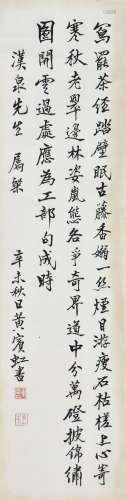 寫罷茶經踏壁眠古藤香嫋一絲煙目游瘦石枯槎上心寄
寒秋老翠邊林姿嵐態各爭奇界道中分萬磴披錦繡
圖開雲過處應為工部句成時
漢泉先生屬粲
辛未秋日黃賓虹書